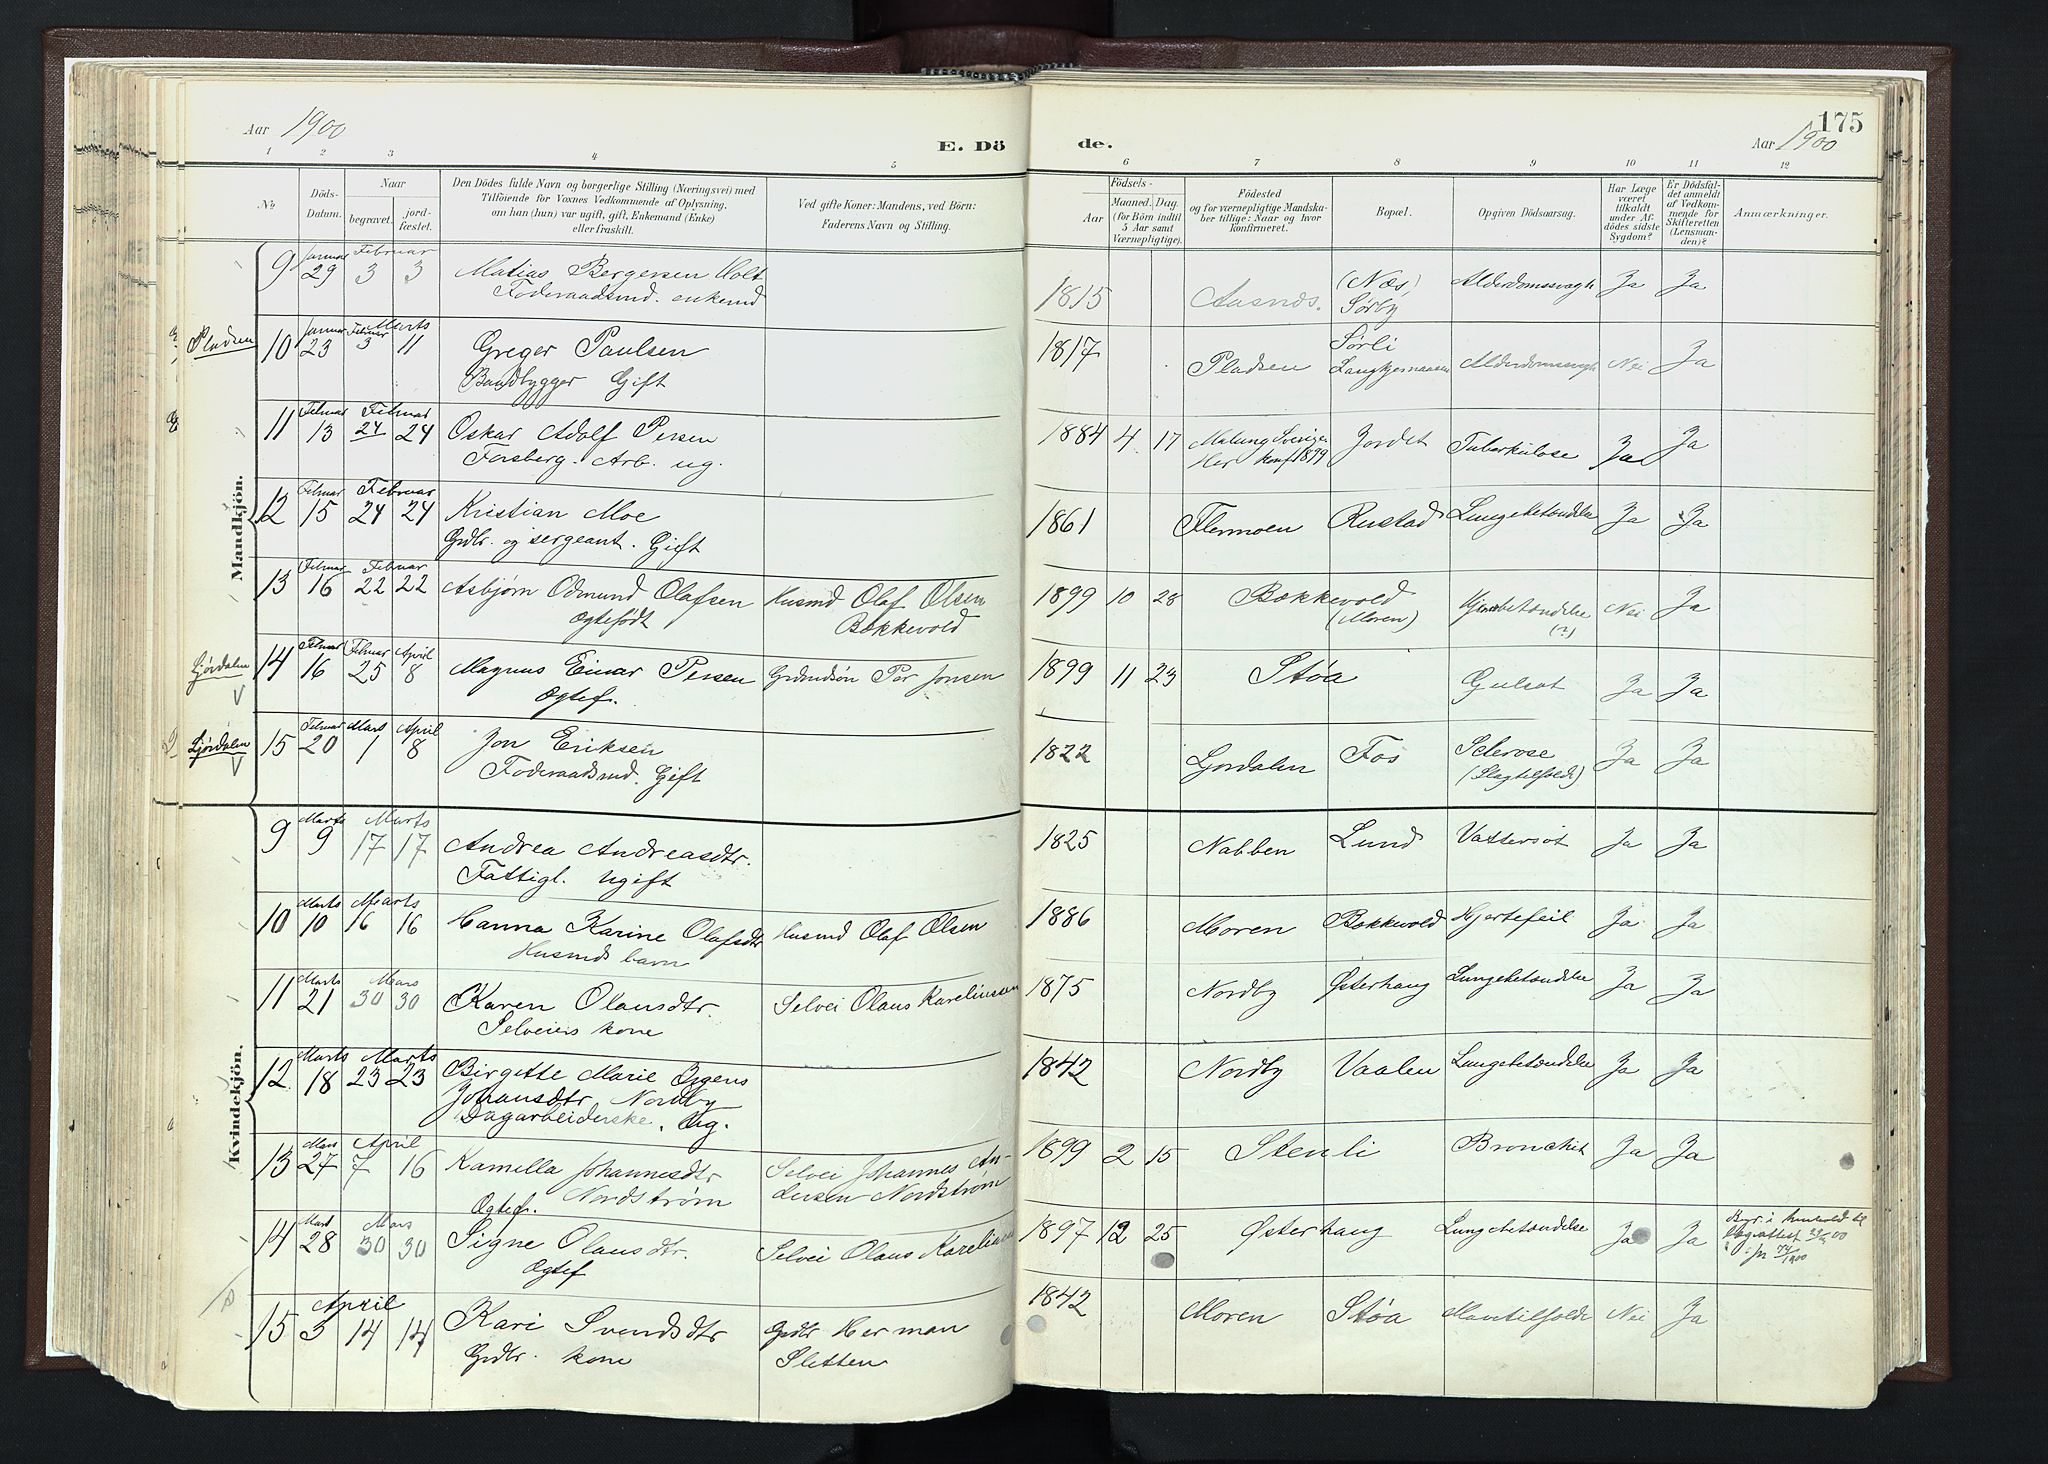 Aar 1900
E. Dö
de.
175
Aar 1900
1 2 3 4 5 6 7 8 9 10 11 12
No.
Döds-
Datum.
Naar
begravet.
jord-
fæstet.
Den Dödes fulde Navn og borgerlige Stilling (Næringsvei) med
Tilföiende for Voxnes Vedkommende af Oplysning,
om han (hun) var ugift, gift, Enkemand (Enke)
eller fraskilt.
Ved gifte Koner: Mandens, ved Börn:
Faderens Navn og Stilling.
Födsels-
Aar
Maaned. Dag.
(for Börn indtil
5 Aar samt
Værnepligtige).
Födested
og for værnepligtige Mandska-
ber tillige: Naar og hvor
konfirmeret.
Bopæl.
Opgiven Dödsaarsag.
Har Læge
været
tilkaldt
under Af-
dödes sidste
Sygdom?
Er Dödsfal-
det anmeldt
af Vedkom-
mende for
Skifteretten
(Lensman-
den)?
Anmærkninger.
Mandkjön.
9 Januar 29 Februar 3 3 Matias Bergersen Holt 1815 Aasnes. (Næs) Alderdomssvagh Ja Ja
Foderaadsmd. enkemd Sørby
Pladsen 10 Januar 23 Februar 3 Marts 11 Greger Paulsen 1817 Pladsen Sørli Alderdomssvagh Nei Ja
Baadbygger Gift
11 Februar 13 Februar 24 24 Oskar Adolf Persen 1884 4 17 Malung Sverige Jordet Tuberkulose Ja Ja
Forsberg. Arb. ug. Her konf. 1899
12 Februar 15 Februar 24 24 Kristian Moe 1861 Flermoen Rustad Lungebetændelse Ja Ja
Grdbr. og sergeant. Gift
13 Februar 16 Februar 22 22 Asbjørn Odmund Olafsen Husmd Olaf Olsen 1899 10 28 Bækkevold Nei Ja
Ægtefødt Bækkevold (Moren) (?)
Ljørdalen 14 Februar 16 Februar 25 April 8 Magnus Einar Persen Per Jonsen 1899 11 23 Støa Gulsot Ja Ja
Ægtef.
Ljørdalen 15 Februar 20 Mars 1 April 8 Jon Eriksen 1822 Ljørdalen Fos Sclerose Ja Ja
Foderaadsmd. Gift (Slagtilfælde)
Kvindekjön.
9 Marts 9 Marts 17 17 Andrea Andreasdtr. 1825 Nabben Lund Vattersot Ja Ja
Fattigl. Ugift
10 Marts 10 Marts 16 16 Hanna Karine Olafsdtr Husmd Olaf Olsen 1886 Moren Bækkevold Hjertefeil Ja Ja
Husmds barn
11 Marts 21 Mars 30 30 Karen Olausdtr. Selvei Olaus Kareliussen 1875 Nordby Østerhaug Lungebetændelse Ja Ja
Selveiers kone
12 Marts 18 Marts 23 23 Birgitte Marie 1842 Nordby Vaalen Lungebetændelse Ja Ja
Johansdtr. Nordby
Dagarbeiderske. Ug.
13 Mars 27 April 7 16 Kamella Johannesdtr Selvei Johannes An- 1899 2 15 Stenli Bronchit Ja Ja
Nordstrøm dersen Nordstrøm
Ægtef.
14 Mars 28 Mars 30 30 Signe Olausdtr. Selvei Olaus Kareliussen 1897 12 25 Østerhaug Lungebetændelse Ja Ja
Ægtef
15 April 3 14 14 Kari Svendsdtr Grdbr Herman 1842 Moren Støa Nei Ja
Grdbr. kone Sletten